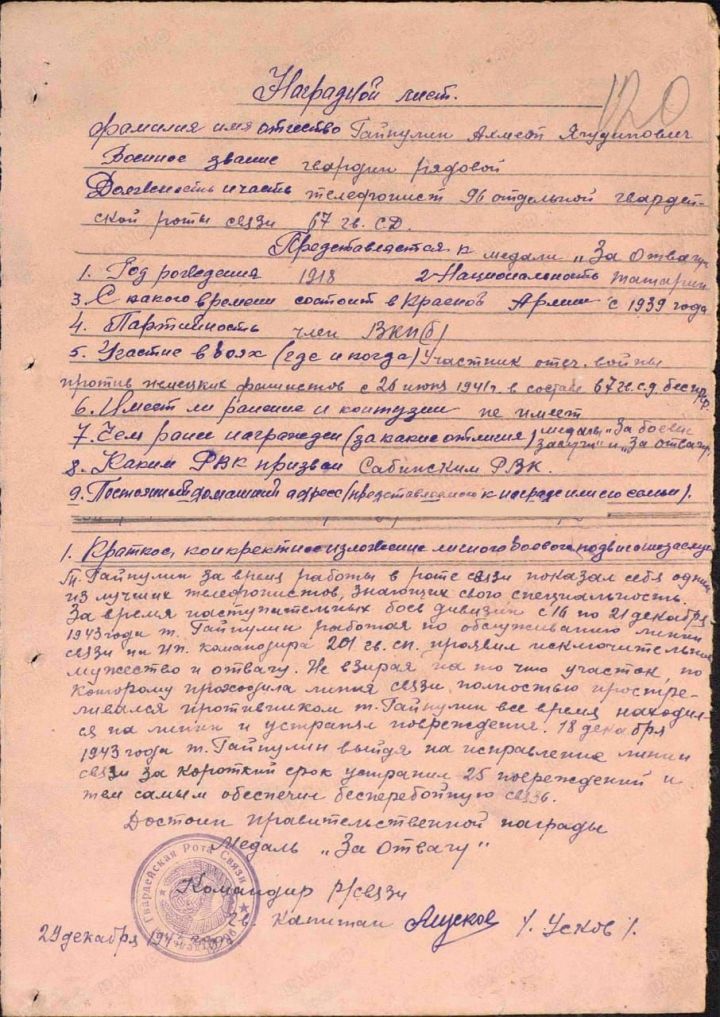 120
Наградной лист.
фамилия имя отчество Гайнулин Ахмет Ягудинович
Военное звание гвардии рядовой
Должность и часть телефонист 96 отдельной гвардей-
ской роты связи 67 гв. СД.
Представляется к медали „За Отвагу"
1. Год рождения 1918 2. Национальность татарин
3. С какого времени состоит в Красной Армии с 1939 года
4. Партийность член ВКП(б)
5. Участие в боях (где и когда) Участник отеч. войны
против немецких фашистов с 26 июня 1941г. в составе 67 гв. с.д.
6. Имеет ли ранение и контузии не имеет
7. Чем ранее награжден (за какие отличия) медаль „За боевые
заслуги" и „За отвагу"
8. Каким РВК призван Сабинским РВК.
9. Постоянный домашний адрес (представляемого к награде или его семьи).
1. Краткое, конкретное изложение личного боевого подвига или заслуг
Т. Гайнулин за время работы в роте связи показал себя одним
из лучших телефонистов, знающих свою специальность.
За время наступательных боев дивизии с 16 по 21 декабря
1943 года т. Гайнулин работая по обслуживанию линии
связи на нп. командира 201 гв. сп. проявил исключительное
мужество и отвагу. Не взирая на то что участок, по
которому проходила линия связи, полностью простре-
ливался противником т. Гайнулин все время находил-
ся на линии и устранял повреждение. 18 декабря
1943 года т. Гайнулин выйдя на исправление линии
связи за короткий срок устранил 25 повреждений и
тем самым обеспечил бесперебойную связь.
Достоин правительственной награды
Медаль „За Отвагу"
Командир Р/связи
гв. капитан /. Усков /.
29 декабря 1943 года
Гвардейская Рота Связи